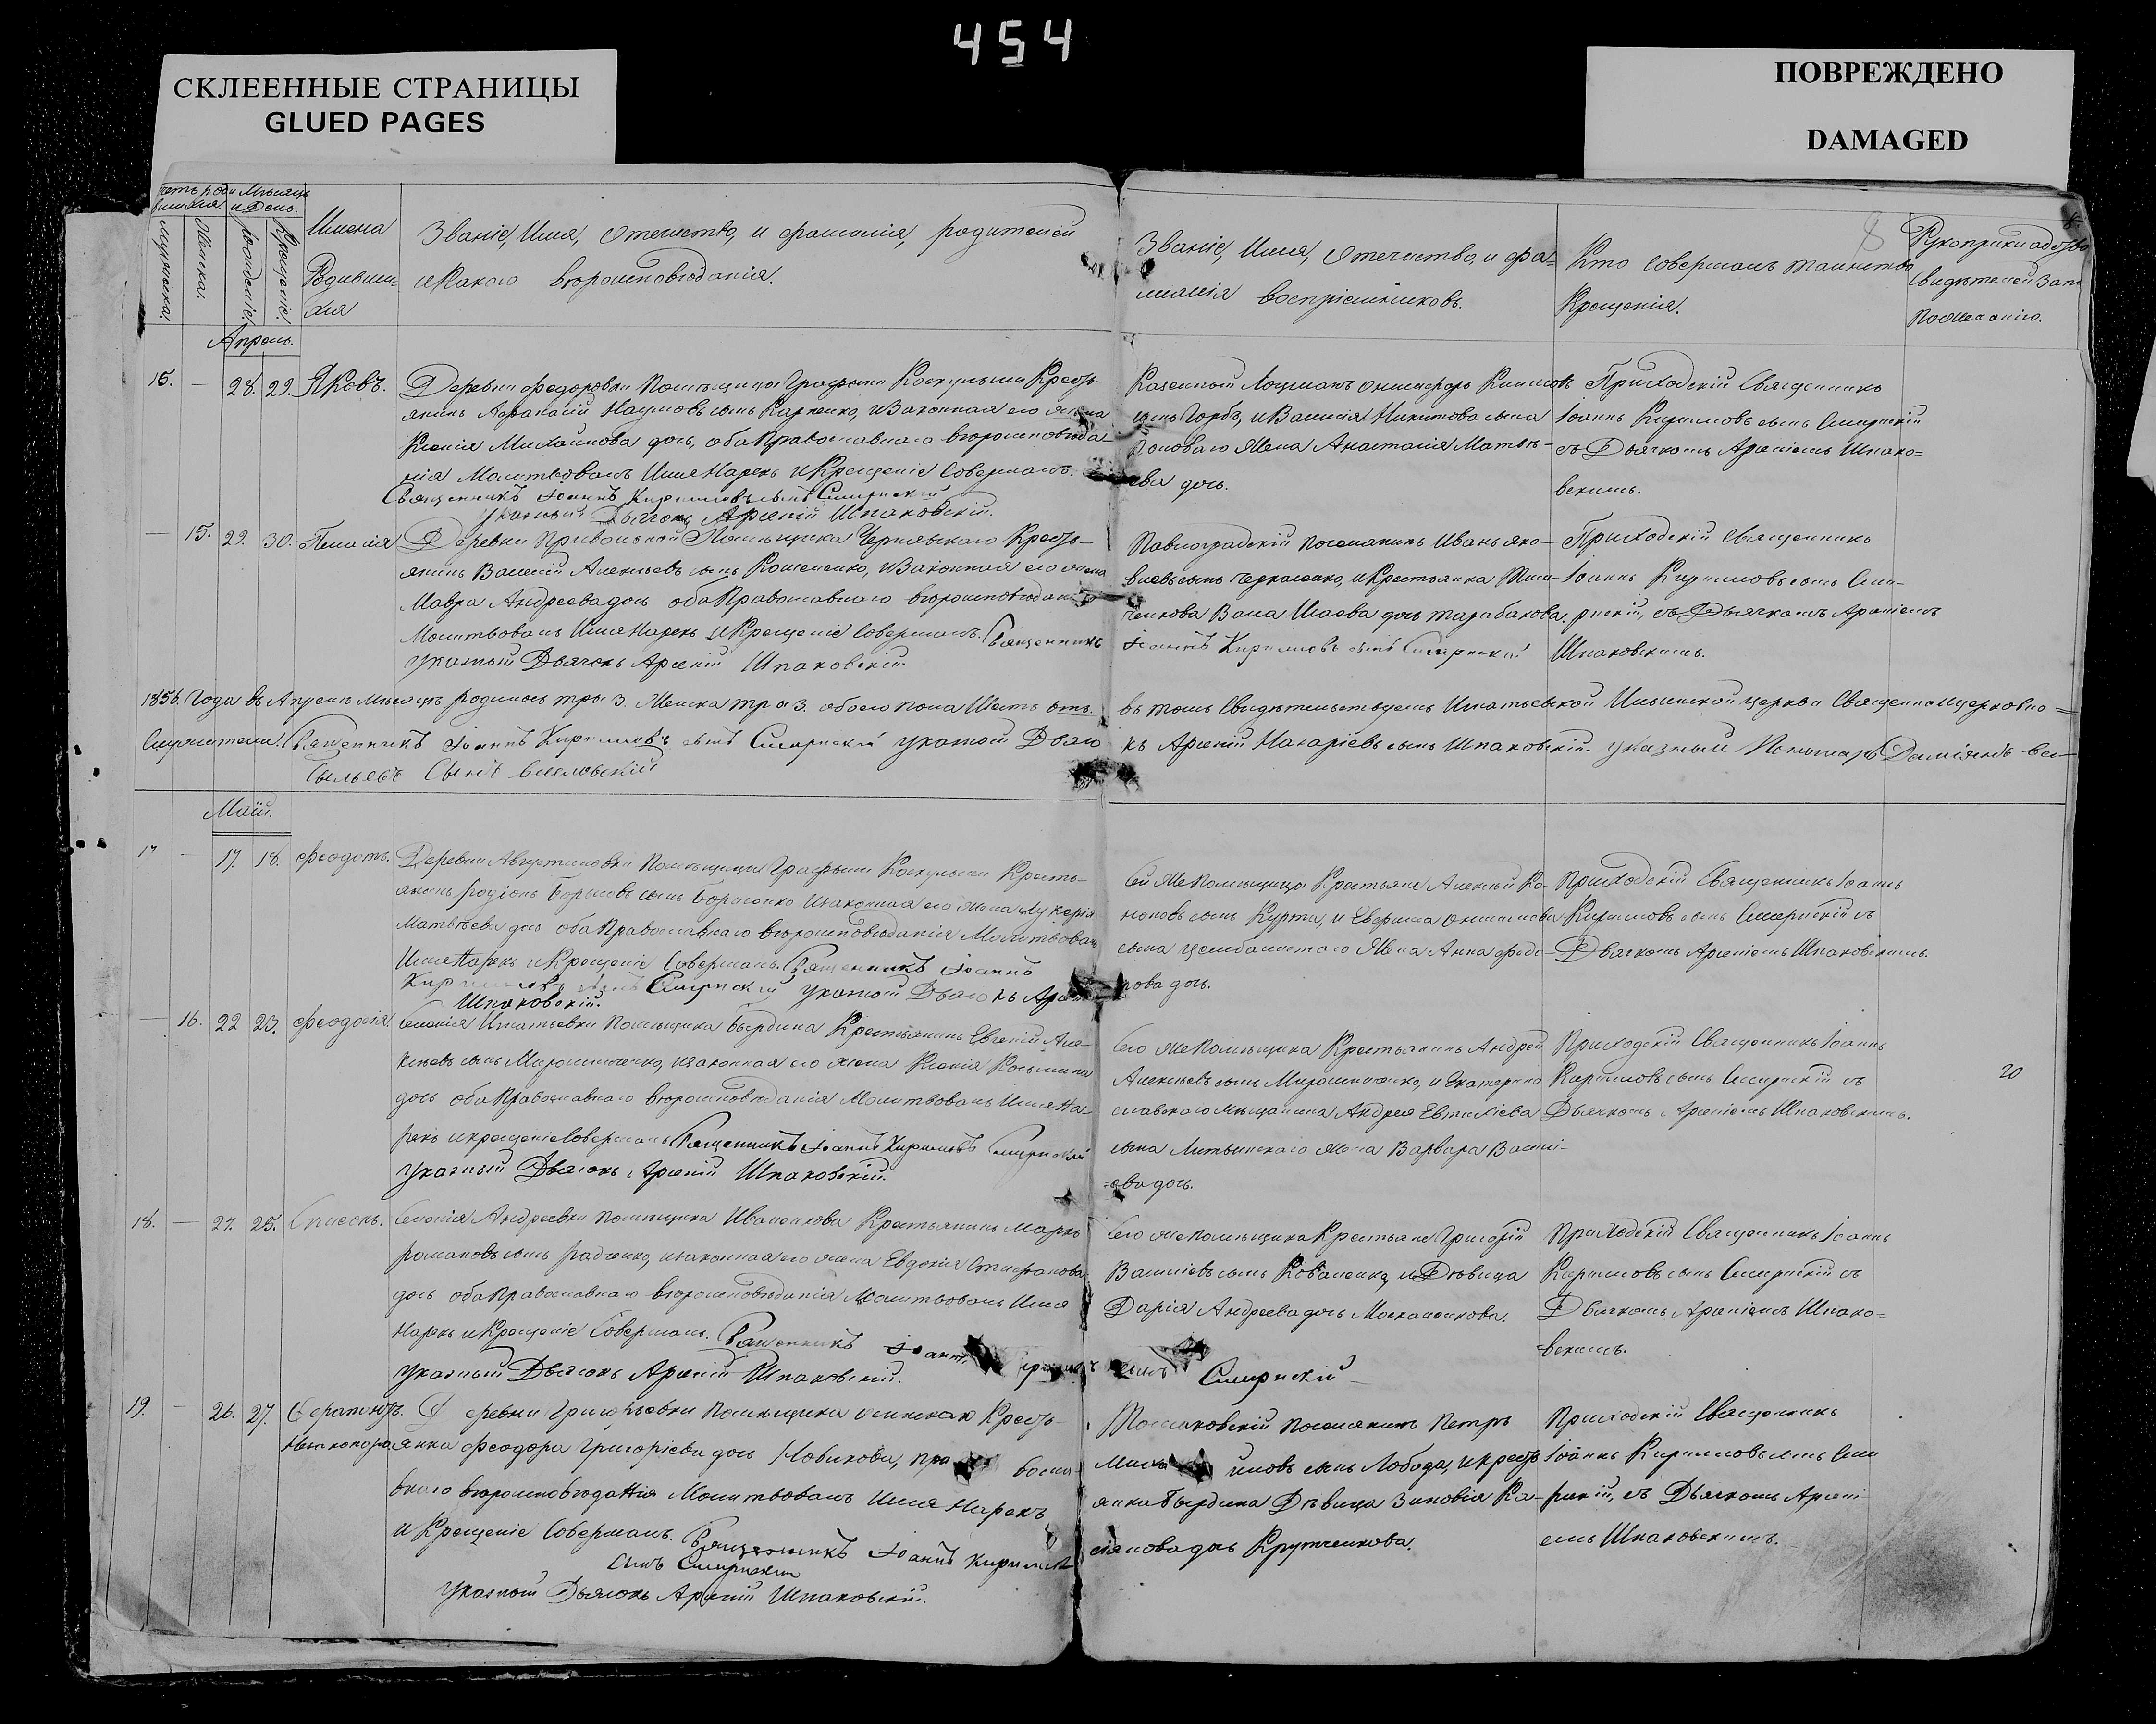 454
СКЛЕЕННЫЕ СТРАНИЦЫ
GLUED PAGES
ПОВРЕЖДЕНО
DAMAGED
8
Мужеска.
Женска.
и День.
рожденіе.
Крещеніе.
Имена
Родивши-
хся
Званіе, Имя, Отечество, и фамилія, родителей
и Какого вѣроисповѣданія.
Званіе, Имя, Отечество, и фа-
милія воспріемниковъ.
Кто совершалъ таинство
Крещенія.
Рукоприкладство
свидѣтелей
по желанію.
Апрель.
15. — 28. 29. Яковъ.
Деревни Федоровки Помѣщицы Графини Кресть-
янинъ Афанасій Наумовъ сынъ Карпенко, и Законная его жена
Ксенія Михайлова дочь, оба Православнаго вѣроисповѣда-
нія Молитвовалъ Имя Нарекъ и Крещеніе Совершалъ.
Священникъ Іоаннъ Кирилловъ сынъ Смирнскій
указный Дьячокъ Арсеній Шпаковскій.
Казенный Лоцманъ
сынъ Горбъ, и Василія Никитова сына
жена Анастасія Матвѣ-
ева дочь.
Приходскій Священникъ
Іоаннъ Кирилловъ сынъ Смирнскій
съ Дьячкомъ Арсеніемъ Шпако-
вскимъ.
— 15. 29. 30. Пелагія
Деревни Привольной Помѣщика Чернявскаго Кресть-
янинъ Василій Алексѣевъ сынъ Кошеленко, и Законная его жена
Мавра Андреева дочь оба Православнаго вѣроисповѣданія
Молитвовалъ Имя Нарекъ и Крещеніе Совершалъ. Священникъ
указный Дьячокъ Арсеній Шпаковскій.
Павлоградскій поселянинъ Иванъ Яко-
влевъ сынъ и Крестьянка
дочь Тарабанова.
Іоаннъ Кирилловъ сынъ Смирнскій
Приходскій Священникъ
Іоаннъ Кирилловъ сынъ Сми-
рнскій, съ Дьячкомъ Арсеніемъ
Шпаковскимъ.
1856. Года въ Апрелѣ мѣсяцѣ родилось три 3. Женска три 3. обоего пола Шесть
въ томъ Свидѣтельствуемъ Игнатьевской Ильинской церкви Священноцерковно-
Служители. Священникъ Іоаннъ Кирилловъ сынъ Смирнскій указной Дьячо
къ Арсеній Назаріевъ сынъ Шпаковскій. указный Пономарь Даміянъ Ва-
сильевъ Сынъ Веселовскій
Май.
17 — 17. 18. Феодотъ.
Деревни Августиновки Помѣщицы Графини Кресть-
янинъ Родіонъ Борисовъ сынъ Борисенко Изаконная его жена Лукерія
Матвѣева дочь оба Православнаго вѣроисповѣданія Молитвовалъ
Имя Нарекъ и Крещеніе Совершалъ. Священникъ Іоаннъ
Кирилловъ сынъ Смирнскій указной Дьячокъ Арсеній
Шпаковскій.
Сей же Помѣщицы Крестьяне Алексѣй Ко-
ноновъ сынъ Курта, и
сына жена Анна
дочь.
Приходскій Священникъ Іоаннъ
Кирилловъ сынъ Смирнскій съ
Дьячкомъ Арсеніемъ Шпаковскимъ.
— 16. 22 23. Феодосія.
Селенія Игнатьевки Помѣщика Бырдина Крестьянинъ Евгеній Але-
ксѣевъ сынъ Мирошниченко, изаконная его жена Ксенія Косьмина
дочь оба Православнаго вѣроисповѣданія Молитвовалъ Имя На-
рекъ и крещеніе Совершалъ Священникъ Іоаннъ Кирилловъ Смирнскій
указный Дьячокъ Арсеній Шпаковскій.
Сего же Помѣщика Крестьянинъ Андрей
Алексѣевъ сынъ Мирошниченко, и Екатерино
славскаго мѣщанина Андрея Евтихіева
сына Литвинскаго жена Варвара Васи-
ева дочь.
Приходскій Священникъ Іоаннъ
Кирилловъ сынъ Смирнскій съ
Дьячкомъ Арсеніемъ Шпаковскимъ.
20
18. — 24. 25.
Селенія Андреевки Помѣщика Иваненкова Крестьянинъ Марко
Романовъ сынъ Радченко, изаконная его жена Евдокія Стефанова
дочь оба Православнаго вѣроисповѣданія Молитвовалъ Имя
Нарекъ и Крещеніе Совершалъ. Священникъ Іоаннъ
указный Дьячокъ Арсеній Шпаковскій.
Сего же Помѣщика Крестьяне Григорій
Василіевъ сынъ Коваленко, и Дѣвица
Дарія Андреева дочь Москаленкова.
сынъ Смирнскій
Приходскій Священникъ Іоаннъ
Кирилловъ сынъ Смирнскій съ
Дьячкомъ Арсеніемъ Шпако-
вскимъ.
19. — 26. 27. Серапіонъ.
Деревни Григорьевки Помѣщика Кресть-
янка Феодора Григоріева дочь Новикова, пра восла-
внаго вѣроисповѣданія Молитвовалъ Имя Нарекъ
и Крещеніе Совершалъ. Священникъ Іоаннъ Кирилловъ
сынъ Смирнскій
указный Дьячокъ Арсеній Шпаковскій.
поселянинъ Петръ
сынъ Лобода, и кресть
янка Бырдина Дѣвица Зиновія Ка-
дочь Крутченкова.
Приходскій Священникъ
Іоаннъ Кирилловъ сынъ Сми
рнскій, съ Дьячкомъ Арсені-
емъ Шпаковскимъ.